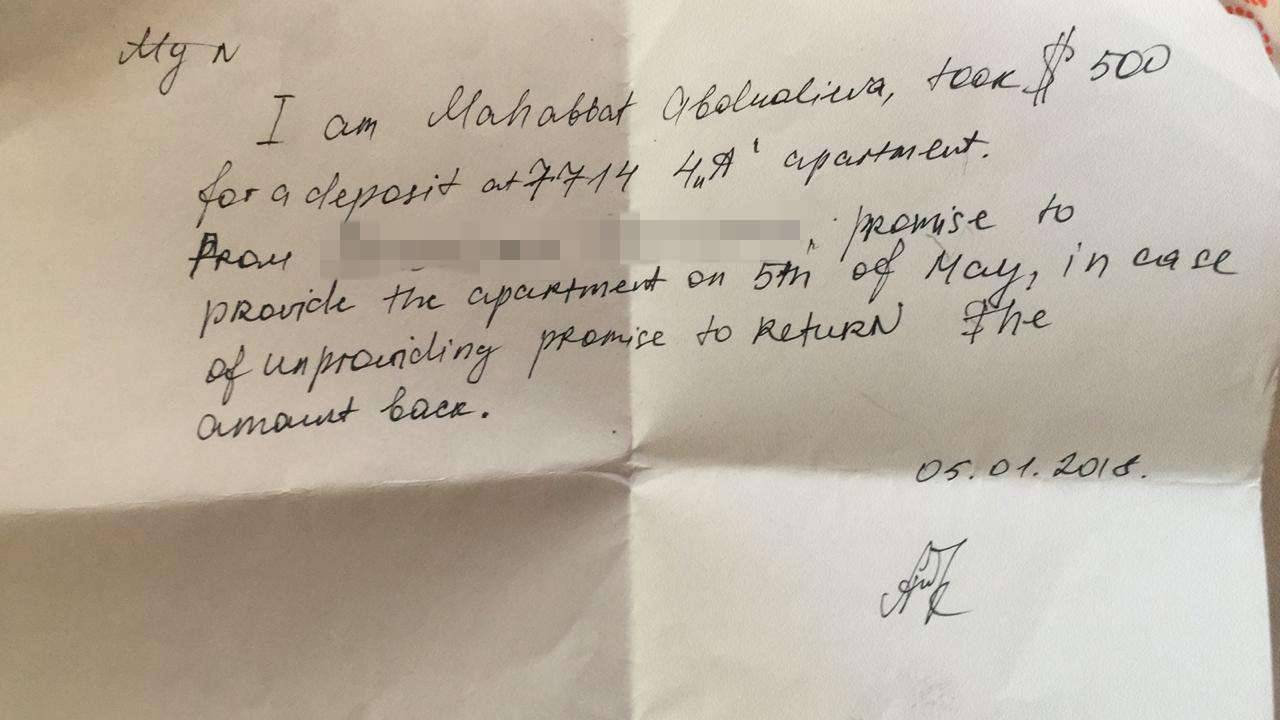 My N
I am Mahabbat Abdualieva, took $ 500
for a deposit at 7714 4„A‘ apartment.
From , promise to
provide the apartment on 5th of May, in case
of unproviding promise to return The
amount back.
05.01.2018.